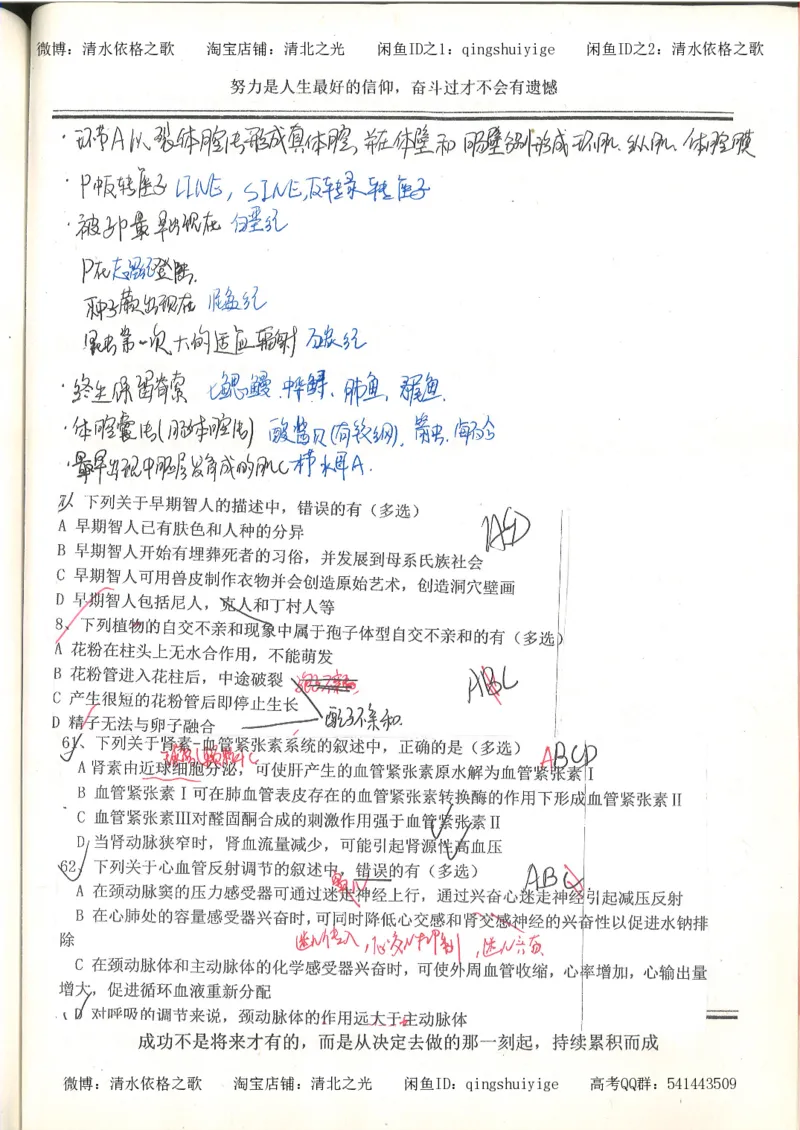 微博：清水依格之歌 淘宝店铺：清北之光 闲鱼ID之1：qingshuiyige 闲鱼ID之2：清水依格之歌
努力是人生最好的信仰，奋斗过才不会有遗憾
·环节A以裂体腔法形成真体腔，并在体壁和肠壁分别形成环肌、纵肌、体腔膜
·P中反转座子 LINE，SINE，反转录转座子
·被子P最早出现在 白垩纪
P在志留纪登陆.
种子蕨出现在 泥盆纪
昆虫第一次大的适应辐射 石炭纪
·终生保留脊索 七鳃鳗.中华鲟、肺鱼,
·体腔囊法(肠体腔法) 酸酱贝(有铰纲)，箭虫.海
·最早出现中胚层发育成的肌C 栉水母A.
7、下列关于早期智人的描述中，错误的有（多选）
A 早期智人已有肤色和人种的分异
B 早期智人开始有埋葬死者的习俗，并发展到母系氏族社会
C 早期智人可用兽皮制作衣物并会创造原始艺术，创造洞穴壁画
D 早期智人包括尼人，克人和丁村人等
8、下列植物的自交不亲和现象中属于孢子体型自交不亲和的有（多选）
A 花粉在柱头上无水合作用，不能萌发
B 花粉管进入花柱后，中途破裂
ABC
C 产生很短的花粉管后即停止生长
D 精子无法与卵子融合 配子不亲和.
61、下列关于肾素-血管紧张素系统的叙述中，正确的是（多选） ABCD
A 肾素由近球细胞分泌，可使肝产生的血管紧张素原水解为血管紧张素Ⅰ
B 血管紧张素Ⅰ可在肺血管表皮存在的血管紧张素转换酶的作用下形成血管紧张素Ⅱ
C 血管紧张素Ⅲ对醛固酮合成的刺激作用强于血管紧张素Ⅱ
D 当肾动脉狭窄时，肾血流量减少，可能引起肾源性高血压
62、下列关于心血管反射调节的叙述中，错误的有（多选） ABC
A 在颈动脉窦的压力感受器可通过迷走神经上行，通过兴奋心迷走神经引起减压反射
B 在心肺处的容量感受器兴奋时，可同时降低心交感和肾交感神经的兴奋性以促进水钠排
除 迷N传入，心交N抑制，迷N兴奋
C 在颈动脉体和主动脉体的化学感受器兴奋时，可使外周血管收缩，心率增加，心输出量
增大，促进循环血液重新分配
D 对呼吸的调节来说，颈动脉体的作用远大于主动脉体
成功不是将来才有的，而是从决定去做的那一刻起，持续累积而成
微博：清水依格之歌 淘宝店铺：清北之光 闲鱼ID：qingshuiyige 高考QQ群：541443509